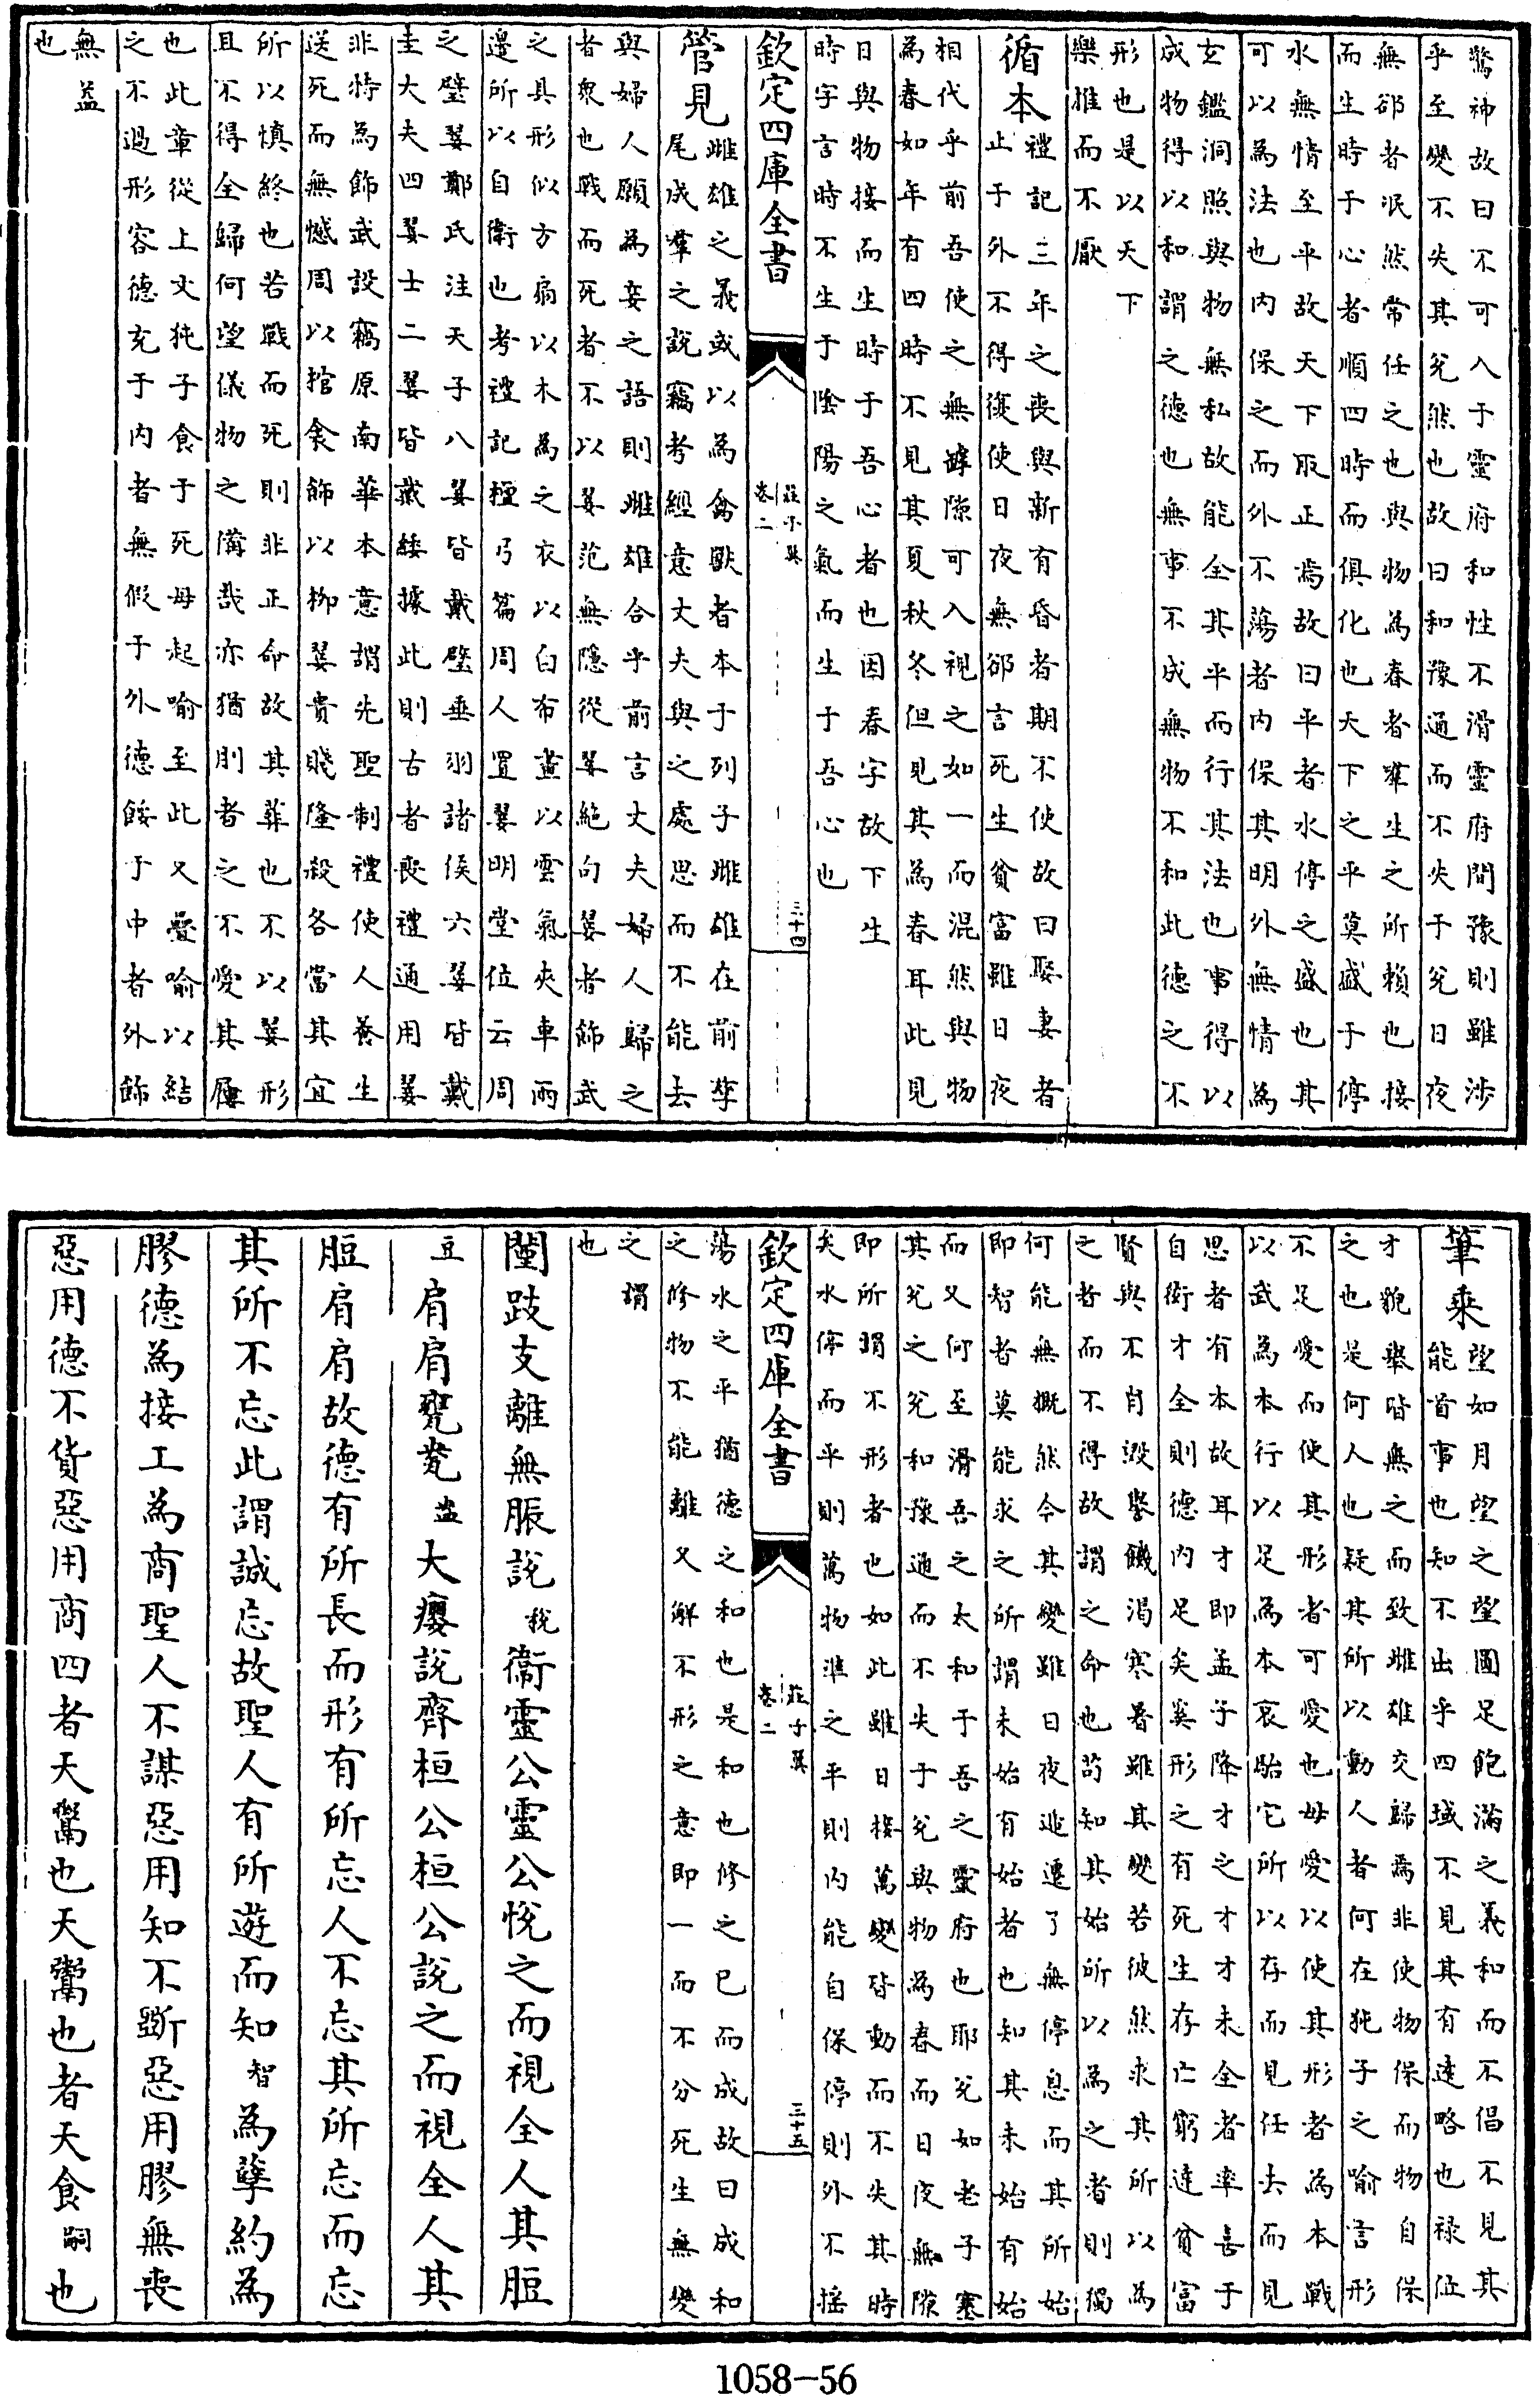 驚神故曰不可入于靈府和性不滑靈府間豫則雖涉
乎至變不失其兊然也故曰和豫通而不失于兊日夜
無郤者泯然常任之也與物為春者羣生之所賴也接
而生時于心者順四時而俱化也天下之平莫盛于停
水無情至平故天下取正焉故曰平者水停之盛也其
可以為法也内保之而外不蕩者内保其明外無情為
玄鑑洞照與物無私故能全其平而行其法也事得以
成物得以和謂之德也無事不成無物不和此德之不
形也是以天下
樂推而不厭
循本
禮記三年之喪與新有昏者期不使故曰娶妻者
止于外不得復使日夜無郤言死生貧富雖日夜
相代乎前吾使之無罅隙可入視之如一而混然與物
為春如年有四時不見其夏秋冬但見其為春耳此見
日與物接而生時于吾心者也因春字故下生
時字言時不生于陰陽之氣而生于吾心也
欽定四庫全書
莊子翼
卷二
三十四
管見
雌雄之義或以為禽獸者本于列子雌雄在前孳
尾成羣之說竊考經意丈夫與之處思而不能去
與婦人願為妾之語則雌雄合乎前言丈夫婦人歸之
者衆也戰而死者不以翣范無隱從翣絶句翣者飾武
之具形似方扇以木為之衣以白布畫以雲氣夾車兩
邊所以自衛也考禮記檀弓篇周人置翣明堂位云周
之璧翣鄭氏注天子八翣皆戴璧垂羽諸侯六翣皆戴
圭大夫四翣士二翣皆戴綏據此則古者喪禮通用翣
非特為飾武設竊原南華本意謂先聖制禮使人養生
送死而無憾周以棺衾飾以柳翣貴賤隆殺各當其宜
所以慎終也若戰而死則非正命故其葬也不以翣形
且不得全歸何望儀物之備哉亦猶刖者之不愛其屨
也此章從上文㹠子食于死母起喻至此又疊喻以結
之不過形容德充于内者無假于外德餒于中者外飾
無益
也
筆乘
望如月望之望圓足飽滿之義和而不倡不見其
能首事也知不出乎四域不見其有逺略也禄位
才貌舉皆無之而致雌雄交歸焉非使物保而物自保
之也是何人也疑其所以動人者何在㹠子之喻言形
不足愛而使其形者可愛也母愛以使其形者為本戰
以武為本行以足為本哀駘它所以存而見任去而見
思者有本故耳才即孟子降才之才才未全者率喜于
自衒才全則德内足矣奚形之有死生存亡窮達貧富
賢與不肖毁譽饑渴寒暑雖其變若彼然求其所以為
之者而不得故謂之命也苟知其始所以為之者則獨
何能無概然今其變雖日夜遞遷了無停息而其所始
即智者莫能求之所謂未始有始者也知其未始有始
而又何至滑吾之太和于吾之靈府也耶兊如老子塞
其兊之兊和豫通而不失于兊與物為春而日夜無隙
即所謂不形者也如此雖日接萬變皆動而不失其時
矣水停而平則萬物準之平則内能自保停則外不揺
欽定四庫全書
莊子翼
卷二
三十五
蕩水之平猶德之和也是和也修之已而成故曰成和
之修物不能離又解不形之意即一而不分死生無變
之謂
也
闉跂支離無脤說税衞靈公靈公悅之而視全人其脰
豆肩肩甕㼜盎大癭說齊桓公桓公說之而視全人其
脰肩肩故德有所長而形有所忘人不忘其所忘而忘
其所不忘此謂誠忘故聖人有所遊而知智為孽約為
膠德為接工為商聖人不謀惡用知不斲惡用膠無喪
惡用德不貨惡用商四者天鬻也天鬻也者天食嗣也
1058-56